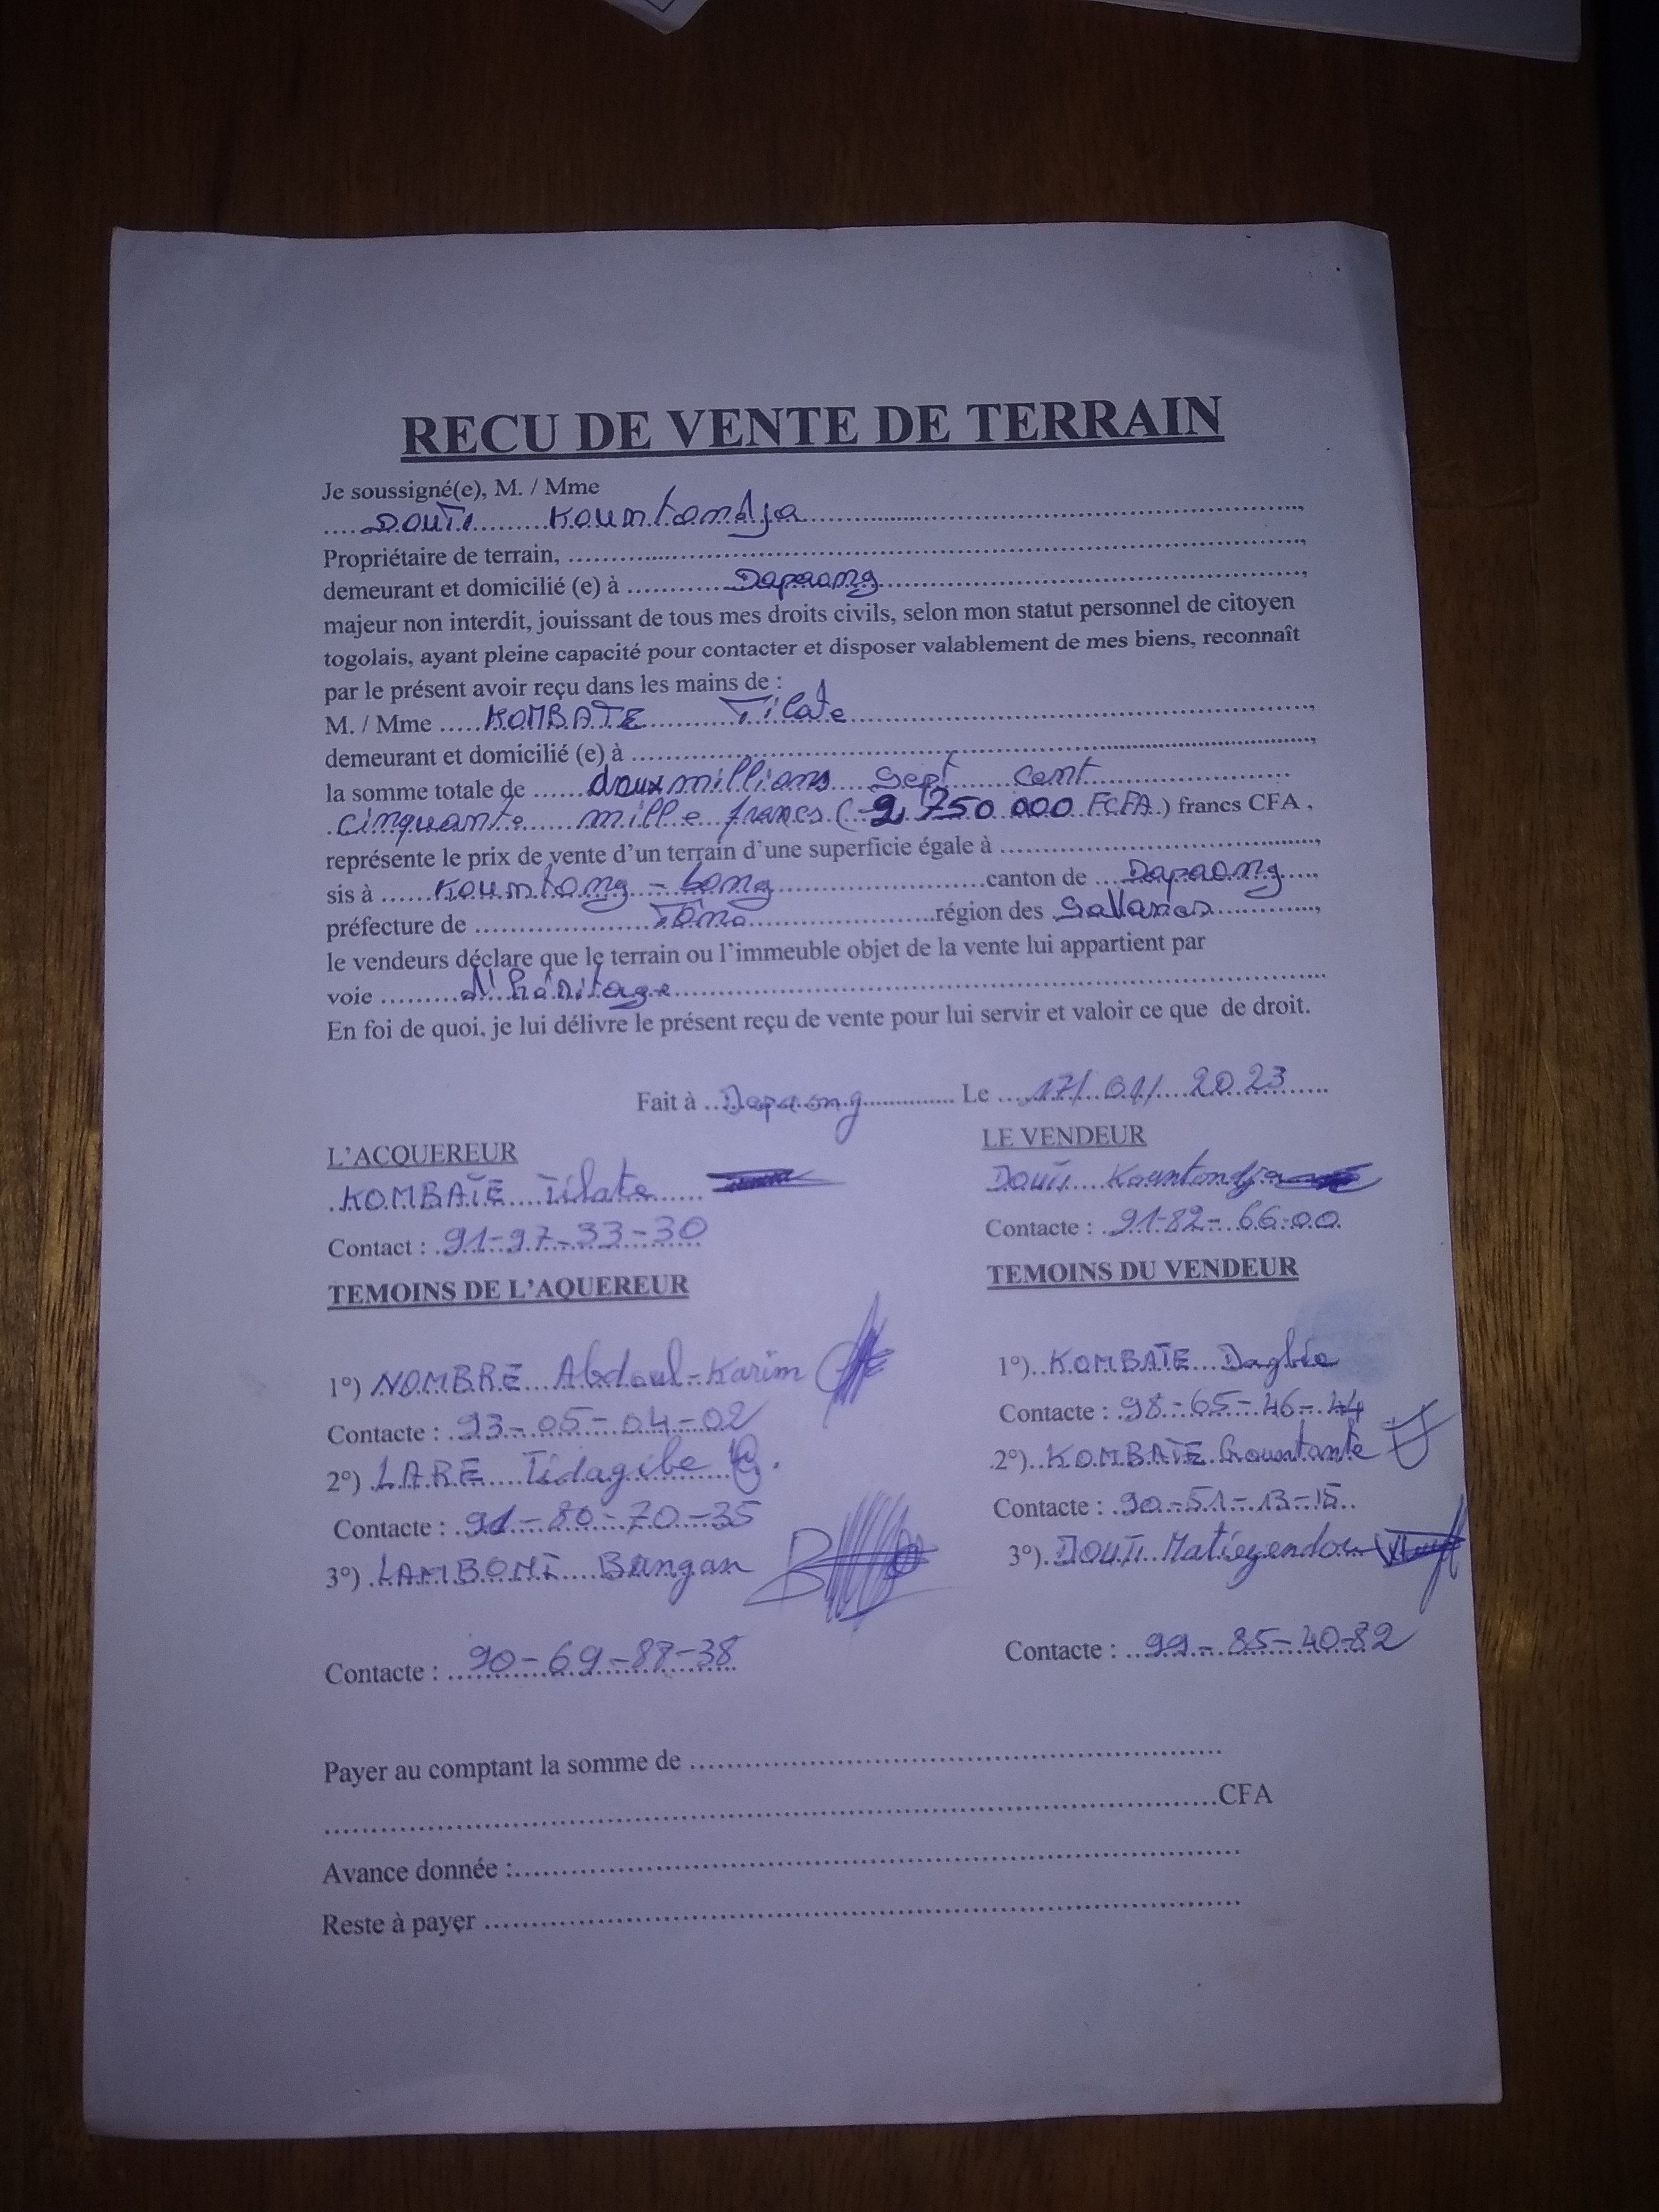 RECU DE VENTE DE TERRAIN
Je soussigné(e), M. / Mme
.... DOUTI ....... Kountondja ...............................................................,
Propriétaire de terrain, ...............................................................................,
demeurant et domicilié (e) à ........... Dapaong ..............................................,
majeur non interdit, jouissant de tous mes droits civils, selon mon statut personnel de citoyen
togolais, ayant pleine capacité pour contacter et disposer valablement de mes biens, reconnaît
par le présent avoir reçu dans les mains de :
M. / Mme ..... KOMBATE ......... Tilate ..................................................,
demeurant et domicilié (e) à ......................................................................,
la somme totale de ...... deux millions ... Sept ..... cent ........................
cinquante ..... mille francs (2 750 000 FCFA.) francs CFA ,
représente le prix de vente d'un terrain d'une superficie égale à ................................,
sis à ...... Kountong - bong ..................canton de ... Dapaong ....,
préfecture de .................. Tône ...................région des Savanes ...........,
le vendeurs déclare que le terrain ou l'immeuble objet de la vente lui appartient par
voie ......... d'héritage .......................................................................
En foi de quoi, je lui délivre le présent reçu de vente pour lui servir et valoir ce que de droit.
Fait à .. Dapaong .............. Le .... 17/ 01/ 2023 ......
L'ACQUEREUR LE VENDEUR
KOMBATE Tilate ...... Douti .... Kountondja
Contact : 91-97-33-30 Contacte : 91-82-66-00
TEMOINS DE L'AQUEREUR TEMOINS DU VENDEUR
1°) NOMBRE Abdoul-Karim 1°).. KOMBATE
Contacte : 93-05-04-02 Contacte : 98-65-46-44
2°) LARE Tidagibe 2°).. KOMBATE
Contacte : 91-80-70-35 Contacte : 90-51-13-15..
3°) LAMBONI Bangan 3°). DOUTI Matiéyendou
Contacte : 90-69-87-38 Contacte : 99-85-40-82
Payer au comptant la somme de ..............................................................
................................................................................................CFA
Avance donnée :............................................................................
Reste à payer ................................................................................